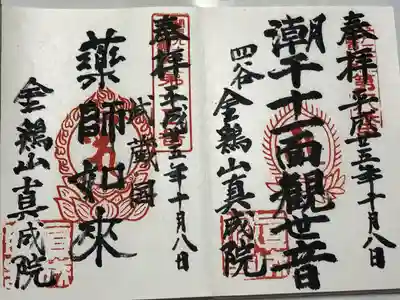 奉拝 平成廿五年十月八日
潮干十一面觀世音
四谷 金鶏山真成院
奉拝 平成廿五年十月八日
武蔵国
藥師如來
金鶏山真成院